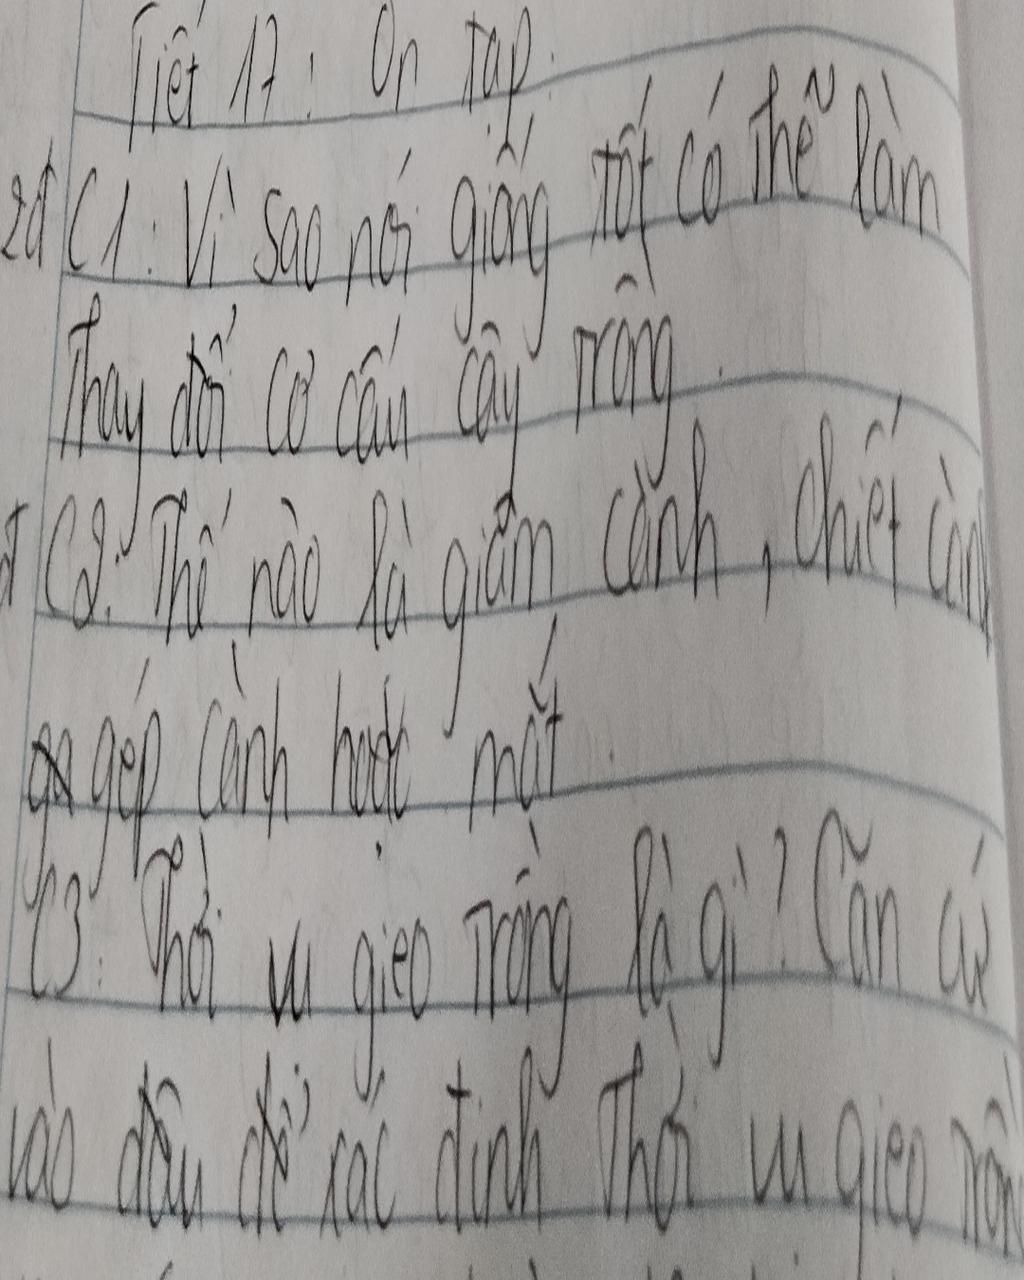 Tiết 17: Ôn tập.
2đ C1: Vì sao nói giống tốt có thể làm
Thay đổi cơ cấu cây trồng.
đ C2: Thế nào là giâm cành, chiết càn
gép cành hoặc mắt.
C3: Thời vụ gieo trồng là gì? Căn cứ
vào đâu để xác định Thời vụ gieo trồn